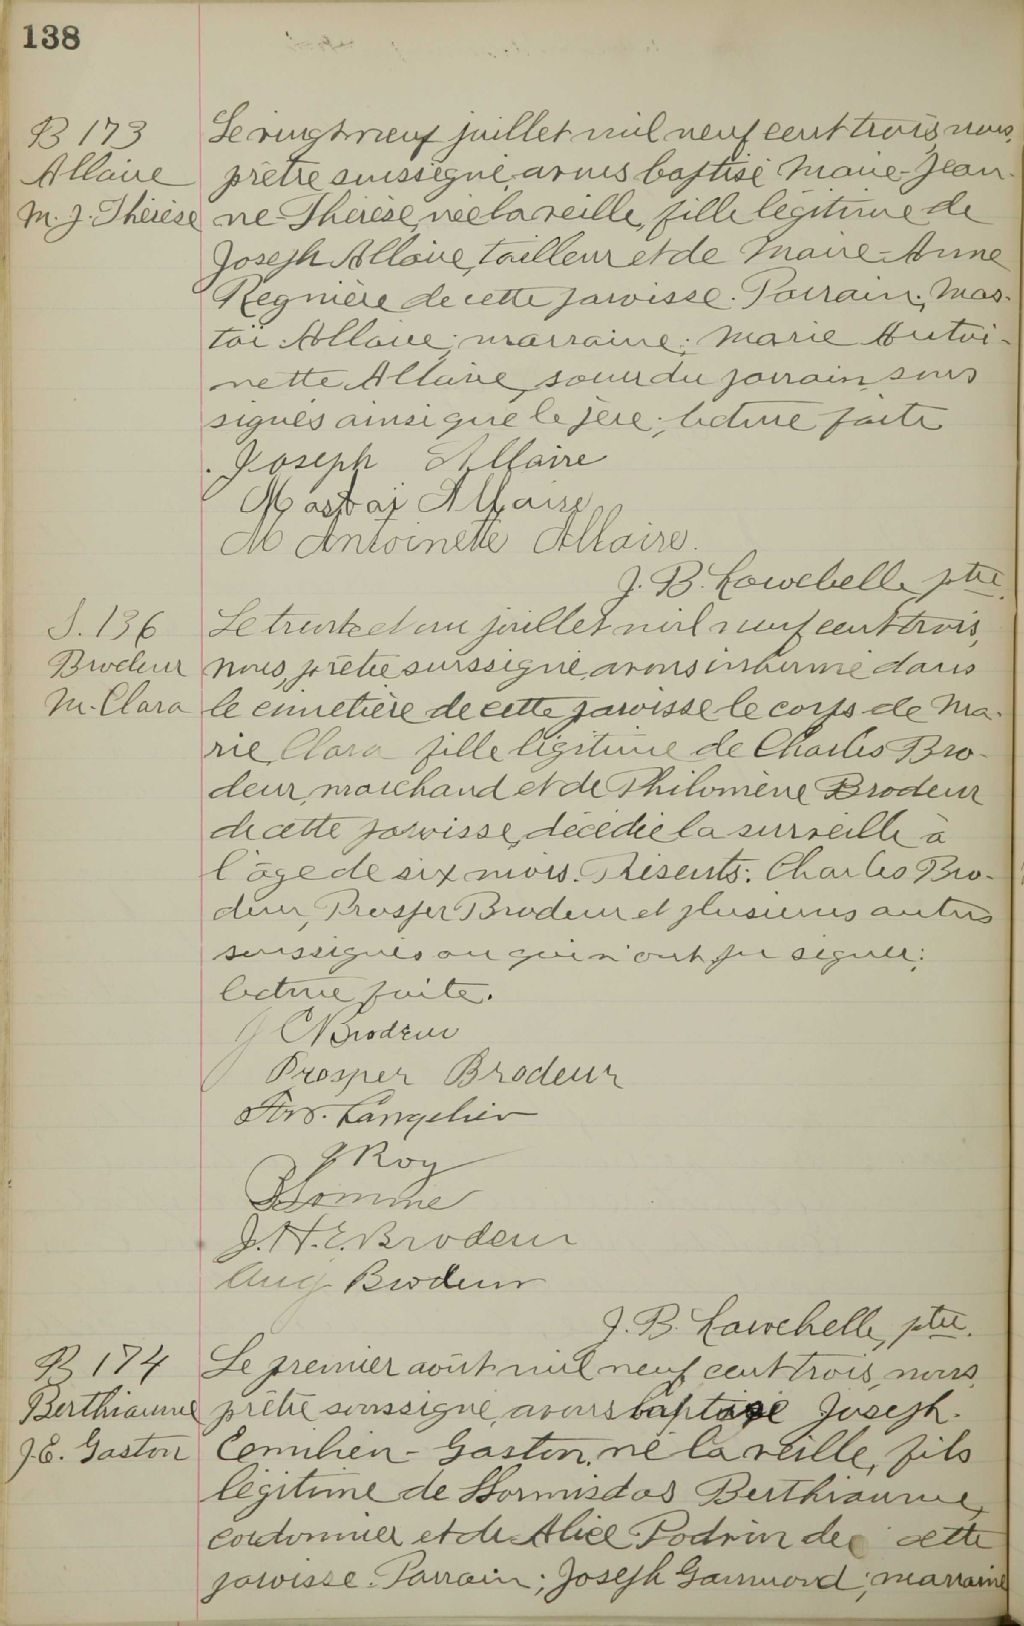 138
B 173
Allaire
M. J. Thérèse
Le vingt neuf juillet mil neuf cent trois, nous,
prêtre soussigné, avons baptisé Marie-Jean-
ne-Thérèse, née la veille, fille légitime de
Joseph Allaire, tailleur et de Marie-Anne
Regnière de cette paroisse. Parrain: Mas-
taï Allaire; marraine: Marie Antoi-
nette Allaire, soeur du parrain, sous
signés ainsi que le père; lecture faite
Joseph Allaire
Mastaï Allaire
M Antoinette Allaire.
J. B. ptre.
S. 136
Brodeur
M. Clara
Le trente et un juillet mil neuf cent trois,
nous, prêtre soussigné, avons inhumé dans
le cimetière de cette paroisse le corps de Ma-
rie Clara fille légitime de Charles Bro-
deur, marchand et de Philomène Brodeur
de cette paroisse, décédée la surveille à
l'âge de six mois. Présents: Charles Bro-
deur, Prosper Brodeur et plusieurs autres
soussignés ou qui n'ont pu signer;
lecture faite.
J C Brodeur
Prosper Brodeur
Langelier
J Roy
J. H. E. Brodeur
Aug Brodeur
J. B. ptre.
B 174
Berthiaume
J. E. Gaston
Le premier août mil neuf cent trois, nous,
prêtre soussigné, avons baptisé Joseph-
Emilien-Gaston, né la veille, fils
légitime de Hormisdas Berthiaume,
cordonnier et de Alice Podvin de cette
paroisse. Parrain: Joseph; marraine